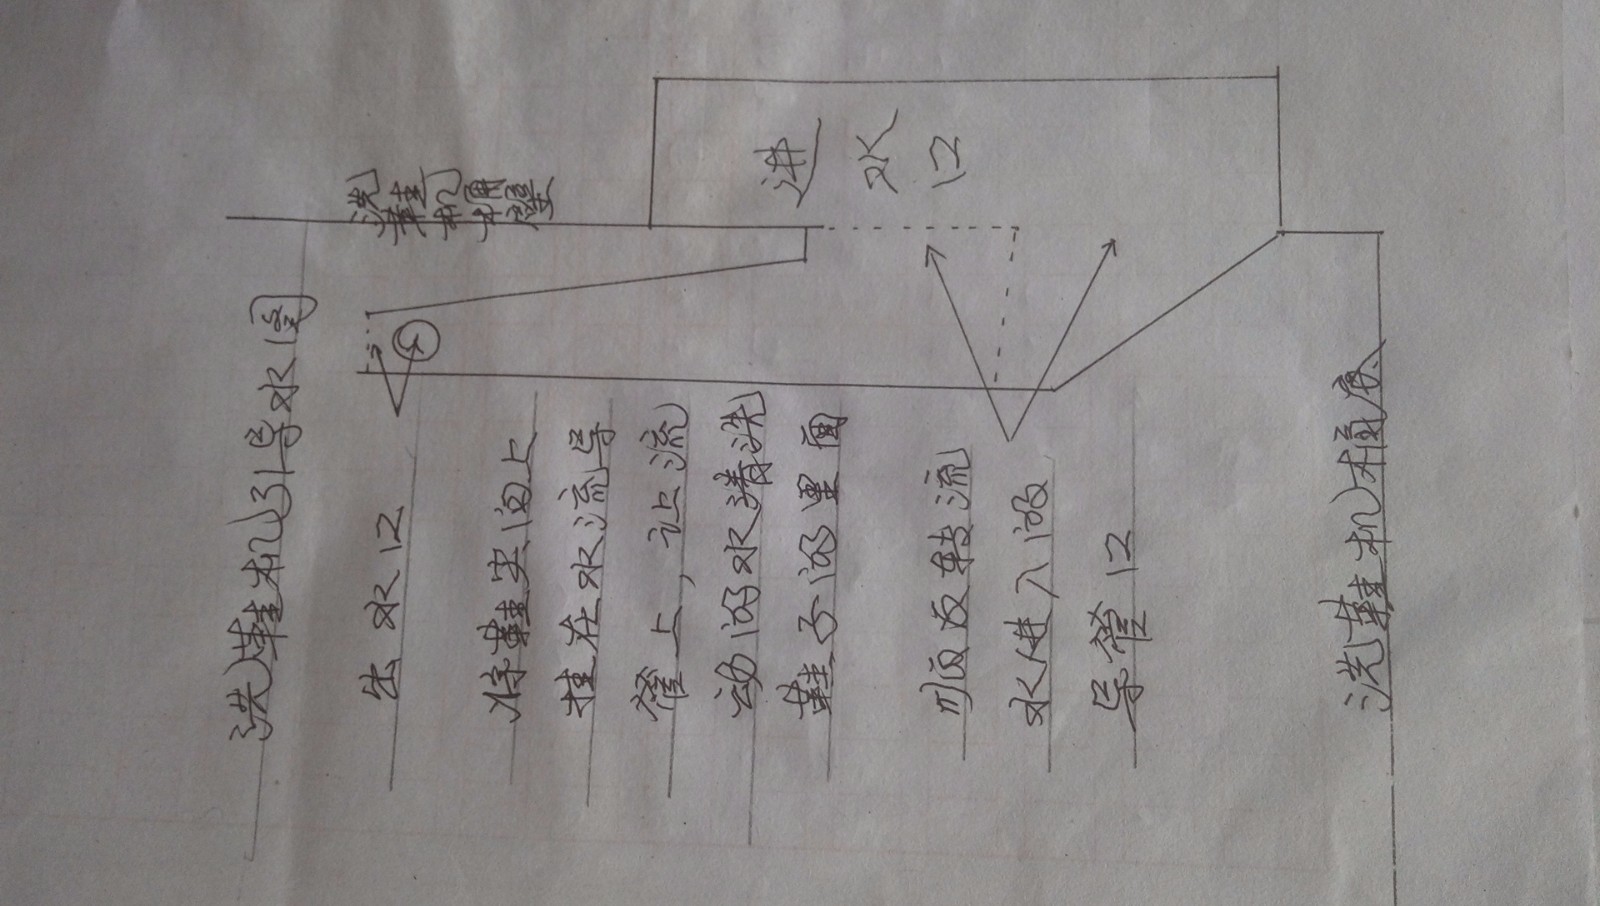 洗鞋机引导水图
洗鞋机桶壁
出水口
将鞋尖向上
挂在水流导
管上，让流
动的水清洗
鞋子的里面
进水口
顺反转流
水进入的
导管口
洗鞋机桶底